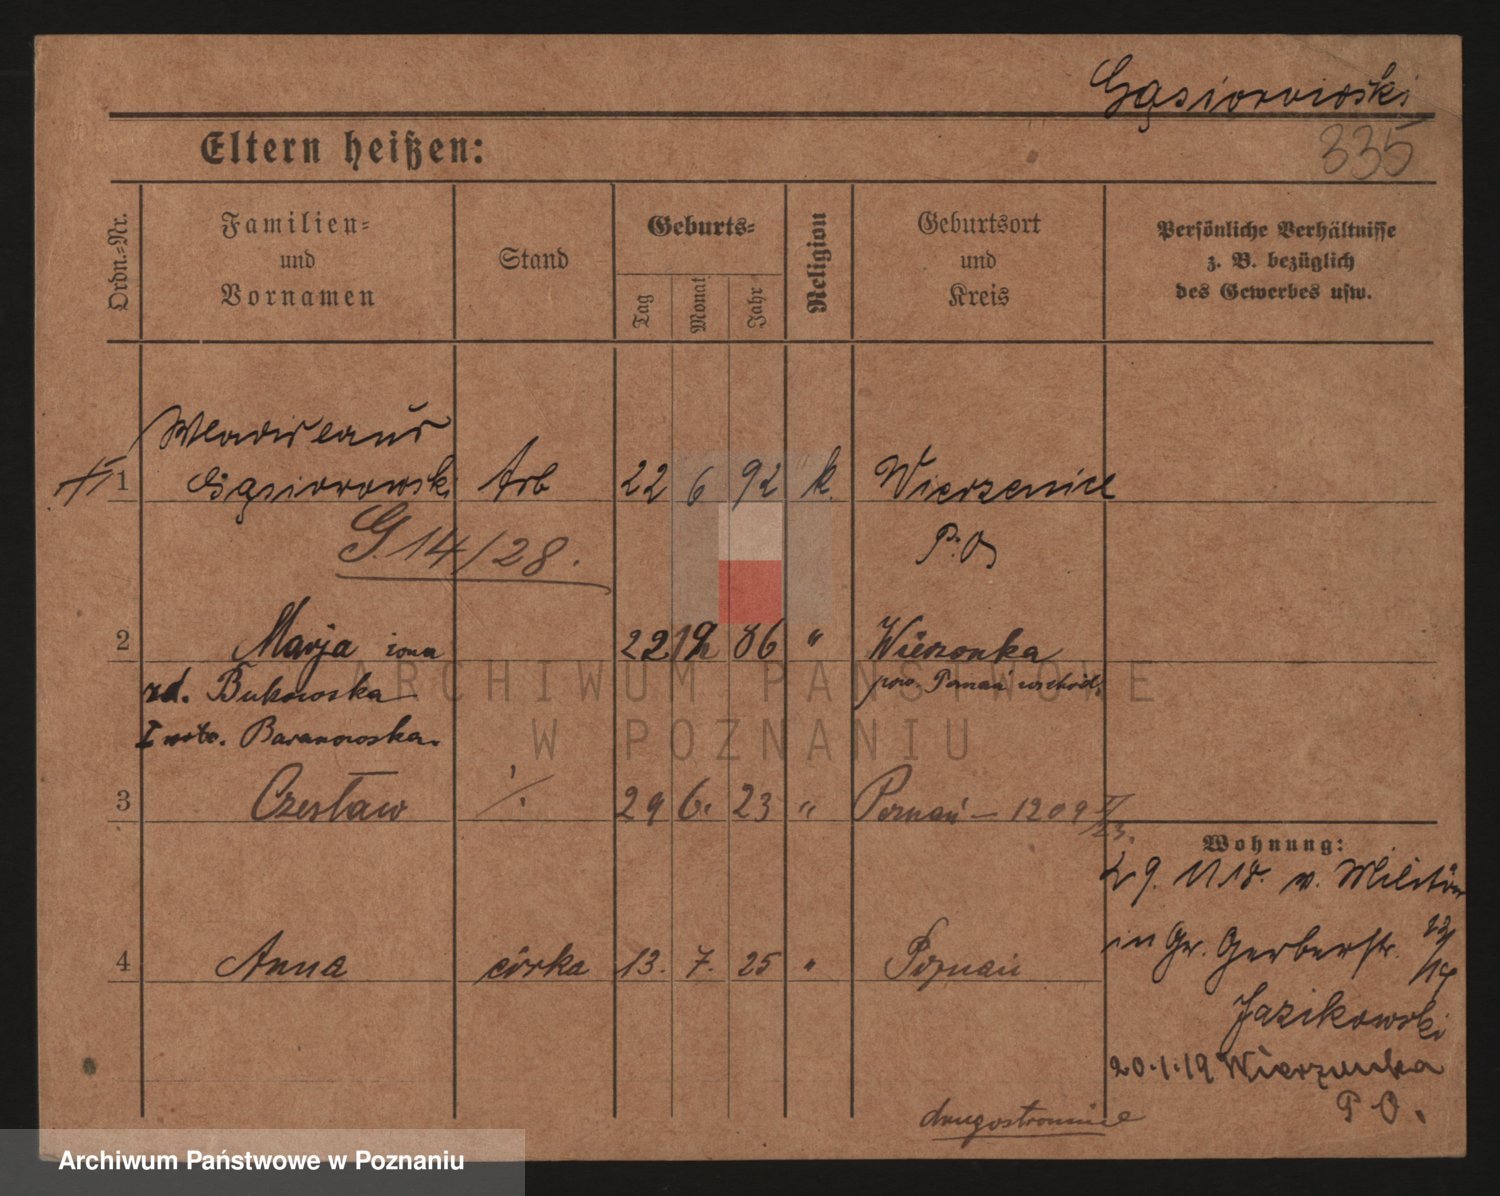 Gąsiorowski
335
Eltern heißen:
Ordn.-Nr.
Familien-
und
Vornamen
Stand
Geburts-
Tag
Monat
Jahr
Religion
Geburtsort
und
Kreis
Persönliche Verhältnisse
z. B. bezüglich
des Gewerbes usw.
Wladislaus
1 Gąsiorowski Arb 22 6 92 k. Wierzenice
G. 14/28. P. O
2 Marja żona 22 12 86 " Wierzonka
zd. Bukowska pow. Poznań wschód.
I voto. Baranowska.
3 Czesław ./. 29 6. 23 " Poznań - 1209
Wohnung:
29. 11 18. v. Militär
in Gr. Gerberstr.
4 Anna córka 13. 7. 25 " Poznań
Jazikowski
20.1.19 Wierzonka
P O.
drugostronnie
ARCHIWUM PAŃSTWOWE
W POZNANIU
Archiwum Państwowe w Poznaniu